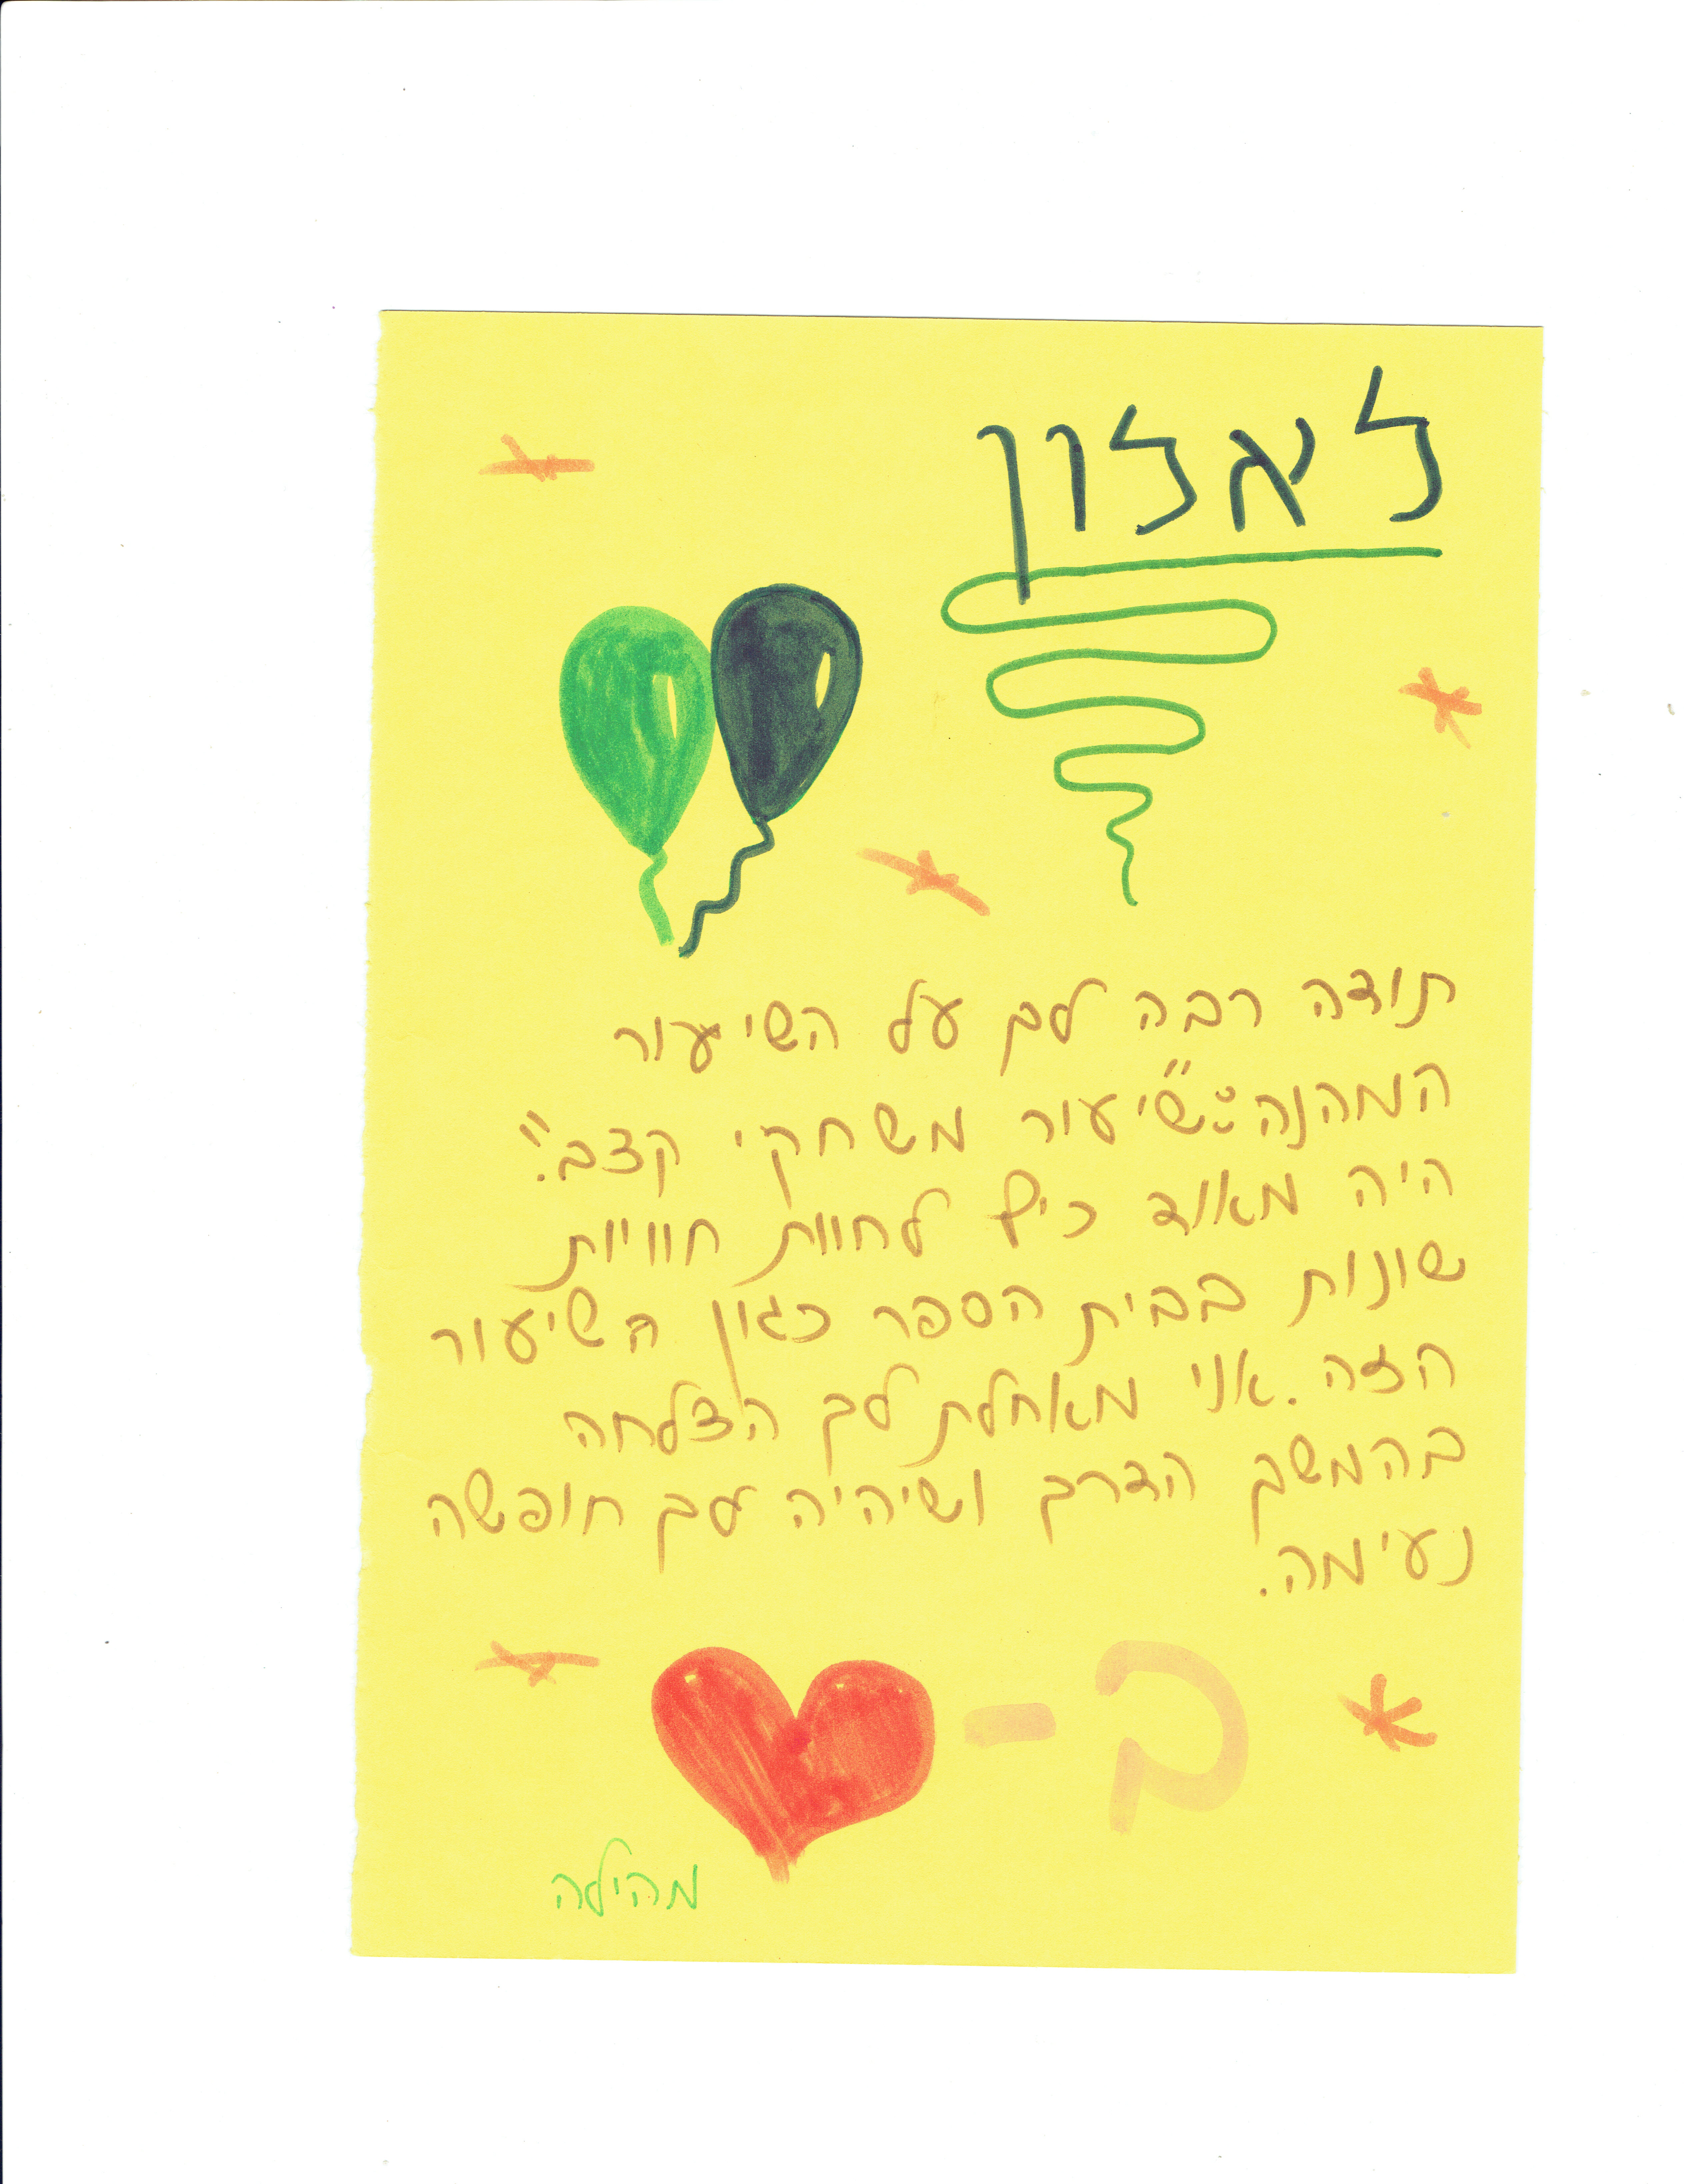 לאלון
תודה רבה לך על השיעור
המהנה: "שיעור משחקי קצב".
היה מאוד כיף לחוות חוויות
שונות בבית הספר כגון השיעור
הזה. אני מאחלת לך הצלחה
בהמשך הדרך ושיהיה לך חופשה
נעימה.
ב-
מהילה